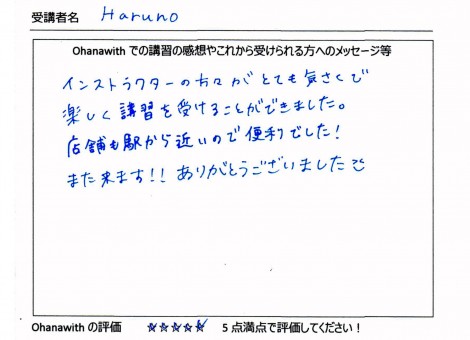 受講者名 Haruno
Ohanawith での講習の感想やこれから受けられる方へのメッセージ等
インストラクターの方々がとても気さくで
楽しく講習を受けることができました。
店舗も駅から近いので便利でした!
また来ます!!ありがとうございました
Ohanawith の評価 ★★★★★ 5点満点で評価してください!